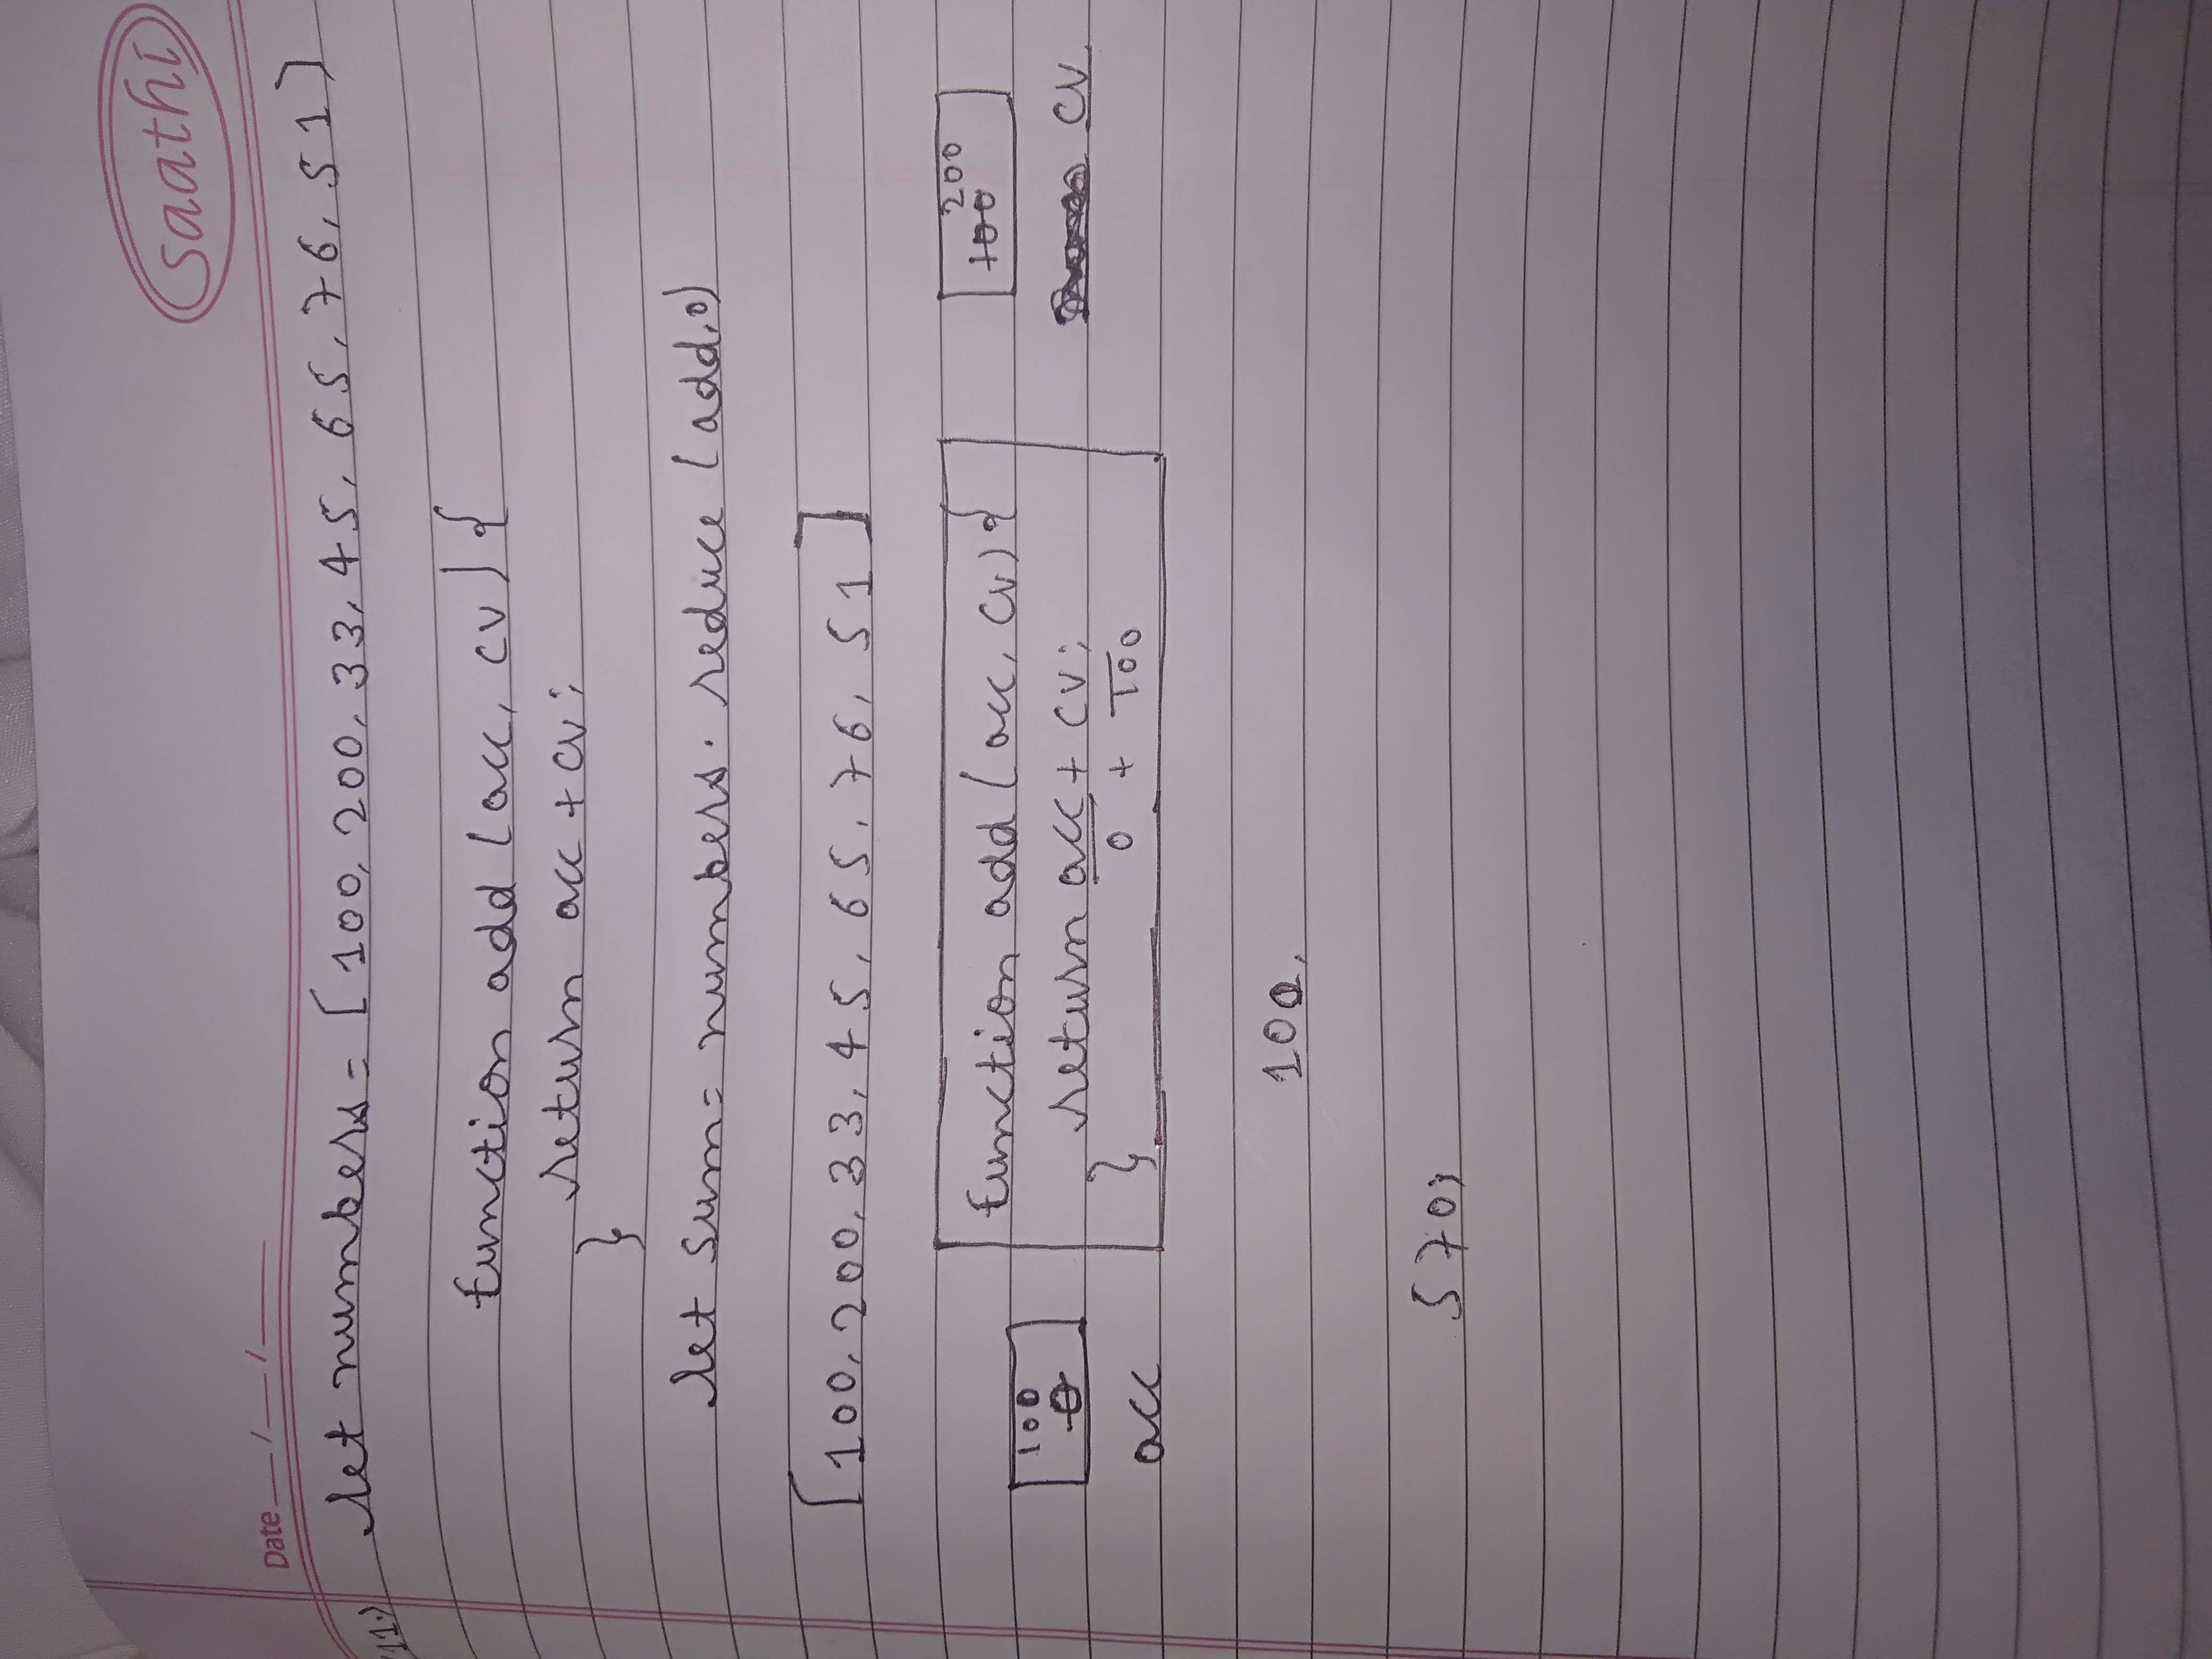 saathi
Date __/__/____
11.) let numbers = [100, 200, 33, 45, 65, 76, 51]
function add (acc, cv) {
return acc + cv;
}
let sum = numbers. reduce (add, 0)
[100, 200, 33, 45, 65, 76, 51]
function add (acc, cv) {
200
100
100
0
return acc + cv;
cv
} 0 + 100
acc
100,
570;